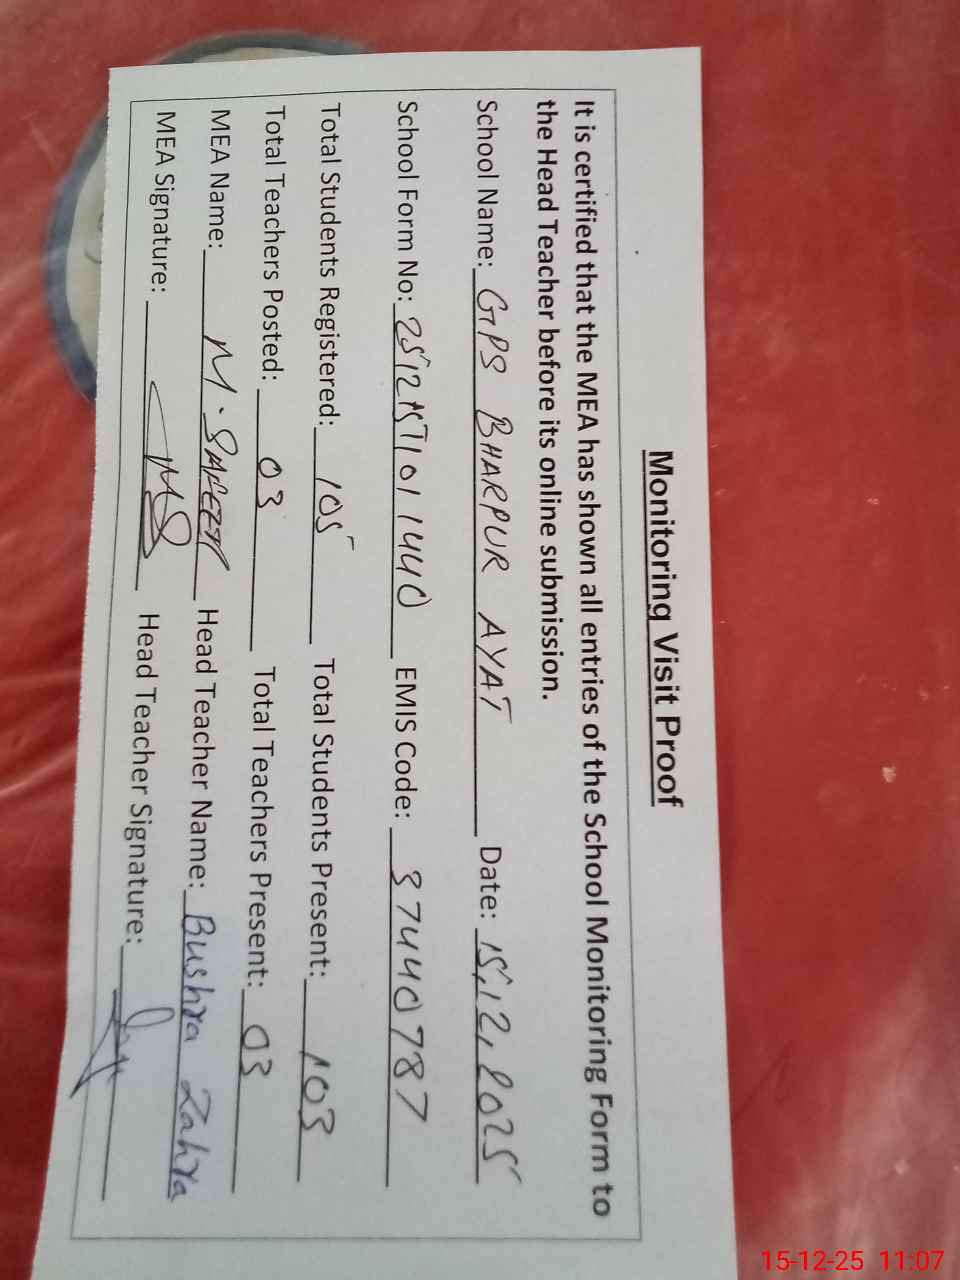 Monitoring Visit Proof
It is certified that the MEA has shown all entries of the School Monitoring Form to
the Head Teacher before its online submission.
School Name: GPS BHARPUR AYAT Date: 15,12,2025
School Form No: EMIS Code: 37440787
Total Students Registered: 105 Total Students Present: 103
Total Teachers Posted: 03 Total Teachers Present: 03
MEA Name: M. Head Teacher Name: Bushra Zahra
MEA Signature: Head Teacher Signature:
15-12-25 11:07